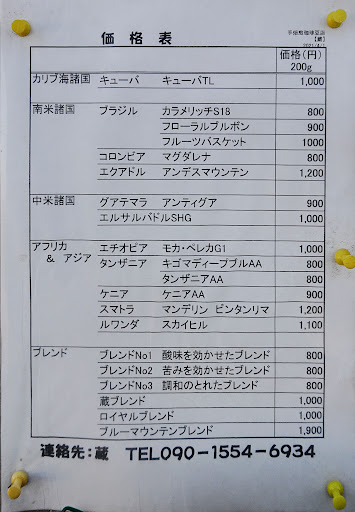 価格表
【蔵】
価格(円)
200g
カリブ海諸国 キューバ キューバTL 1,000
南米諸国 ブラジル カラメリッチS18 800
フローラルブルボン 900
フルーツバスケット 1000
コロンビア マグダレナ 800
エクアドル アンデスマウンテン 1,200
中米諸国 グアテマラ アンティグア 900
エルサルバドルSHG 1,000
アフリカ エチオピア モカ・ベレカG1 1,000
& アジア タンザニア キゴマディープブルAA 800
タンザニアAA 800
ケニア ケニアAA 900
スマトラ マンデリン ビンタンリマ 1,200
ルワンダ スカイヒル 1,100
ブレンド ブレンドNo1 酸味を効かせたブレンド 800
ブレンドNo2 苦みを効かせたブレンド 800
ブレンドNo3 調和のとれたブレンド 800
蔵ブレンド 1,000
ロイヤルブレンド 1,000
ブルーマウンテンブレンド 1,900
連絡先:蔵 TEL090-1554-6934